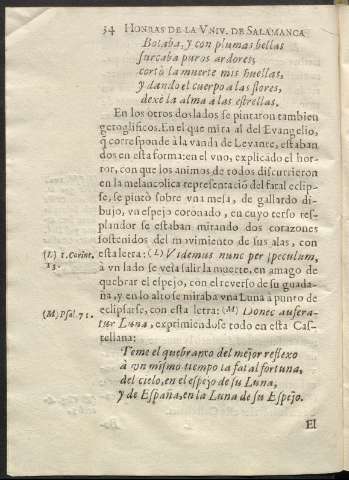 54 HONRAS DE LA VNIV. DE SALAMANCA
Botaba, y con plumas bellas
surcaba puros ardores,
cortò la muerte mis huellas,
y dando el cuerpo a las flores,
dexè la alma a las estrellas.
En los otros dos lados se pintaron tambien
geroglificos. En el que mira al del Evangelio,
q̃ corresponde à la vanda de Levante, estaban
dos en esta forma: en el vno, explicado el hor-
ror, con que los animos de todos discurrieron
en la melancolica representaciõ del fatal eclip-
se, se pintò sobre vna mesa, de gallardo di-
bujo, vn espejo coronado, en cuyo terso res-
plandor se estaban mirando dos corazones
sostenidos del movimiento de sus alas, con
esta letra: (L) Videmus nunc per speculum,
à vn lado se veìa salir la muerte, en amago de
quebrar el espejo, con el reverso de su guada-
ña, y en lo alto se miraba vna Luna à punto de
eclipsarse, con esta letra: (M) Donec aufera-
tur Luna, exprimiendose todo en esta Cas-
tellana:
Teme el quebranto del mejor reflexo
à vn mismo tiempo la fatal fortuna,
del cielo, en el espejo de su Luna,
y de España, en la Luna de su Espejo.
El
(L) 1. Corint.
13.
(M) Psal. 71.